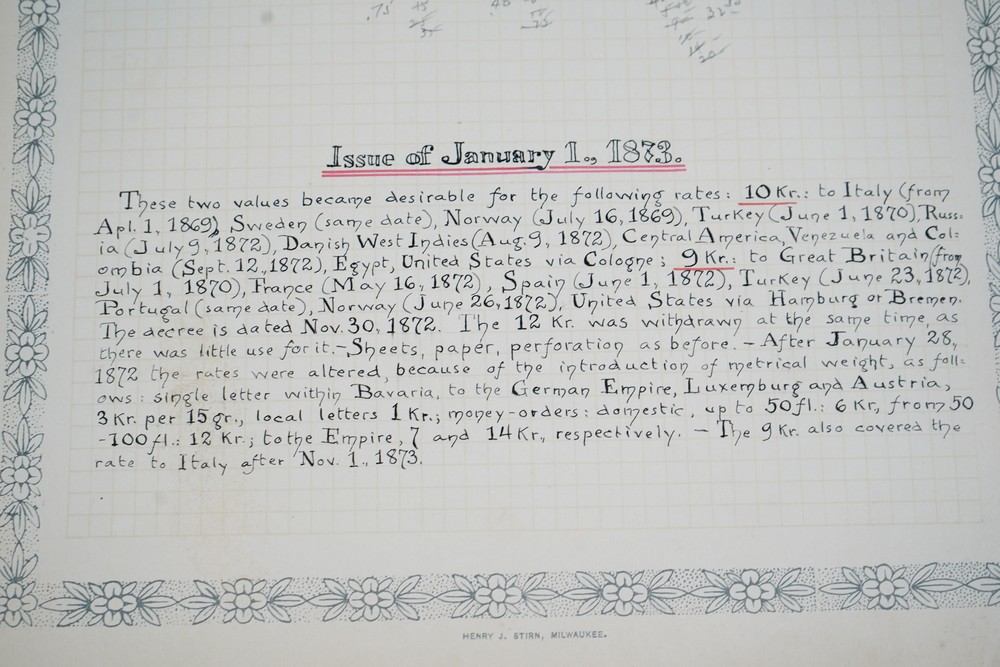 .75
Issue of January 1., 1873.
These two values became desirable for the following rates: 10 Kr.: to Italy (from
Apl. 1, 1869), Sweden (same date), Norway (July 16, 1869), Turkey (June 1, 1870), Russ=
ia (July 9, 1872), Danish West Indies (Aug. 9, 1872), Central America, Venezuela and Col=
ombia (Sept. 12., 1872), Egypt, United States via Cologne; 9 Kr.: to Great Britain (from
July 1, 1870), France (May 16, 1872), Spain (June 1, 1872), Turkey (June 23, 1872),
Portugal (same date), Norway (June 26, 1872), United States via Hamburg or Bremen.
The decree is dated Nov. 30, 1872. The 12 Kr. was withdrawn at the same time, as
there was little use for it. – Sheets, paper, perforation as before. – After January 28,
1872 the rates were altered, because of the introduction of metrical weight, as foll=
ows: single letter within Bavaria, to the German Empire, Luxemburg and Austria,
3 Kr. per 15 gr., local letters 1 Kr.; money-orders: domestic, up to 50 fl.: 6 Kr, from 50
-100 fl.: 12 Kr.; to the Empire, 7 and 14 Kr., respectively. – The 9 Kr. also covered the
rate to Italy after Nov. 1., 1873.
HENRY J. STIRN, MILWAUKEE.